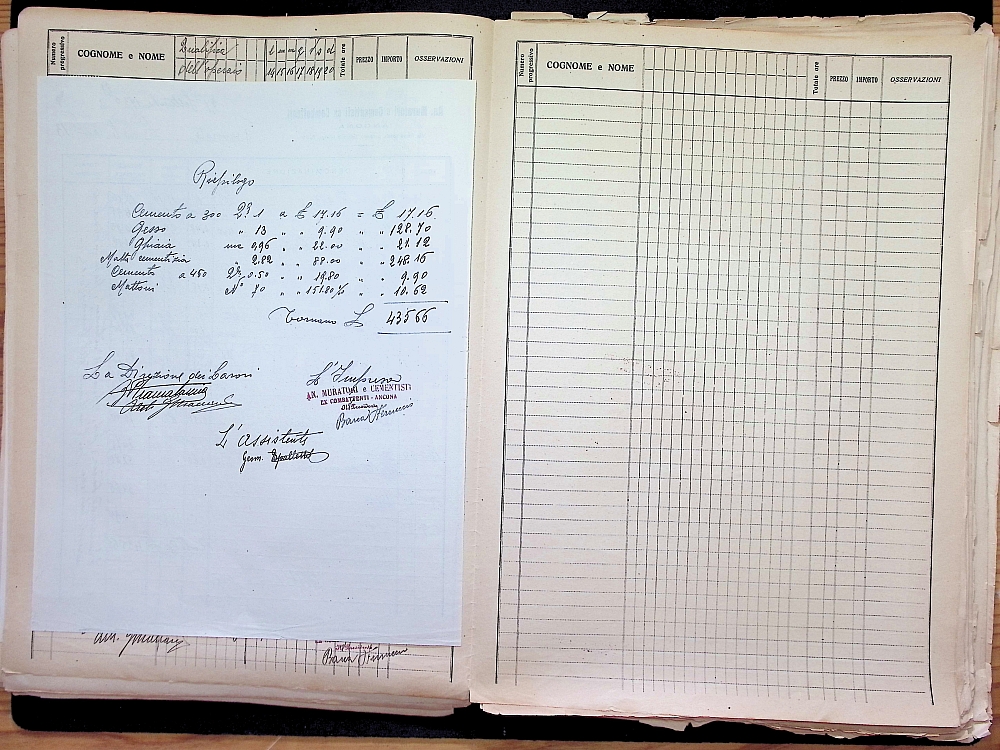 Numero progressivo COGNOME e NOME Qualifica dell'operaio l m m g v s d 14 15 16 17 18 19 20 Totale ore PREZZO IMPORTO OSSERVAZIONI
Riepilogo
Cemento a 300 Q.li 1 a £ 17.16 = £ 17.16
Gesso " 13 " " 9.90 " " 128.70
Ghiaia mc 0,96 " " 22.00 " " 21.12
" 2.82 " " 88.00 " " 248.16
Cemento a 450 Q.li 0.50 " " 19.80 " " 9.90
Mattoni N° 70 " " 151.80 % " " 10.62
Tornano £ 435 66
La Direzione dei Lavori
L'Impresa
AN. MURATORI e CEMENTISTI
EX COMBATTENTI - ANCONA
L'assistente
Geom.
Numero progressivo COGNOME e NOME Totale ore PREZZO IMPORTO OSSERVAZIONI